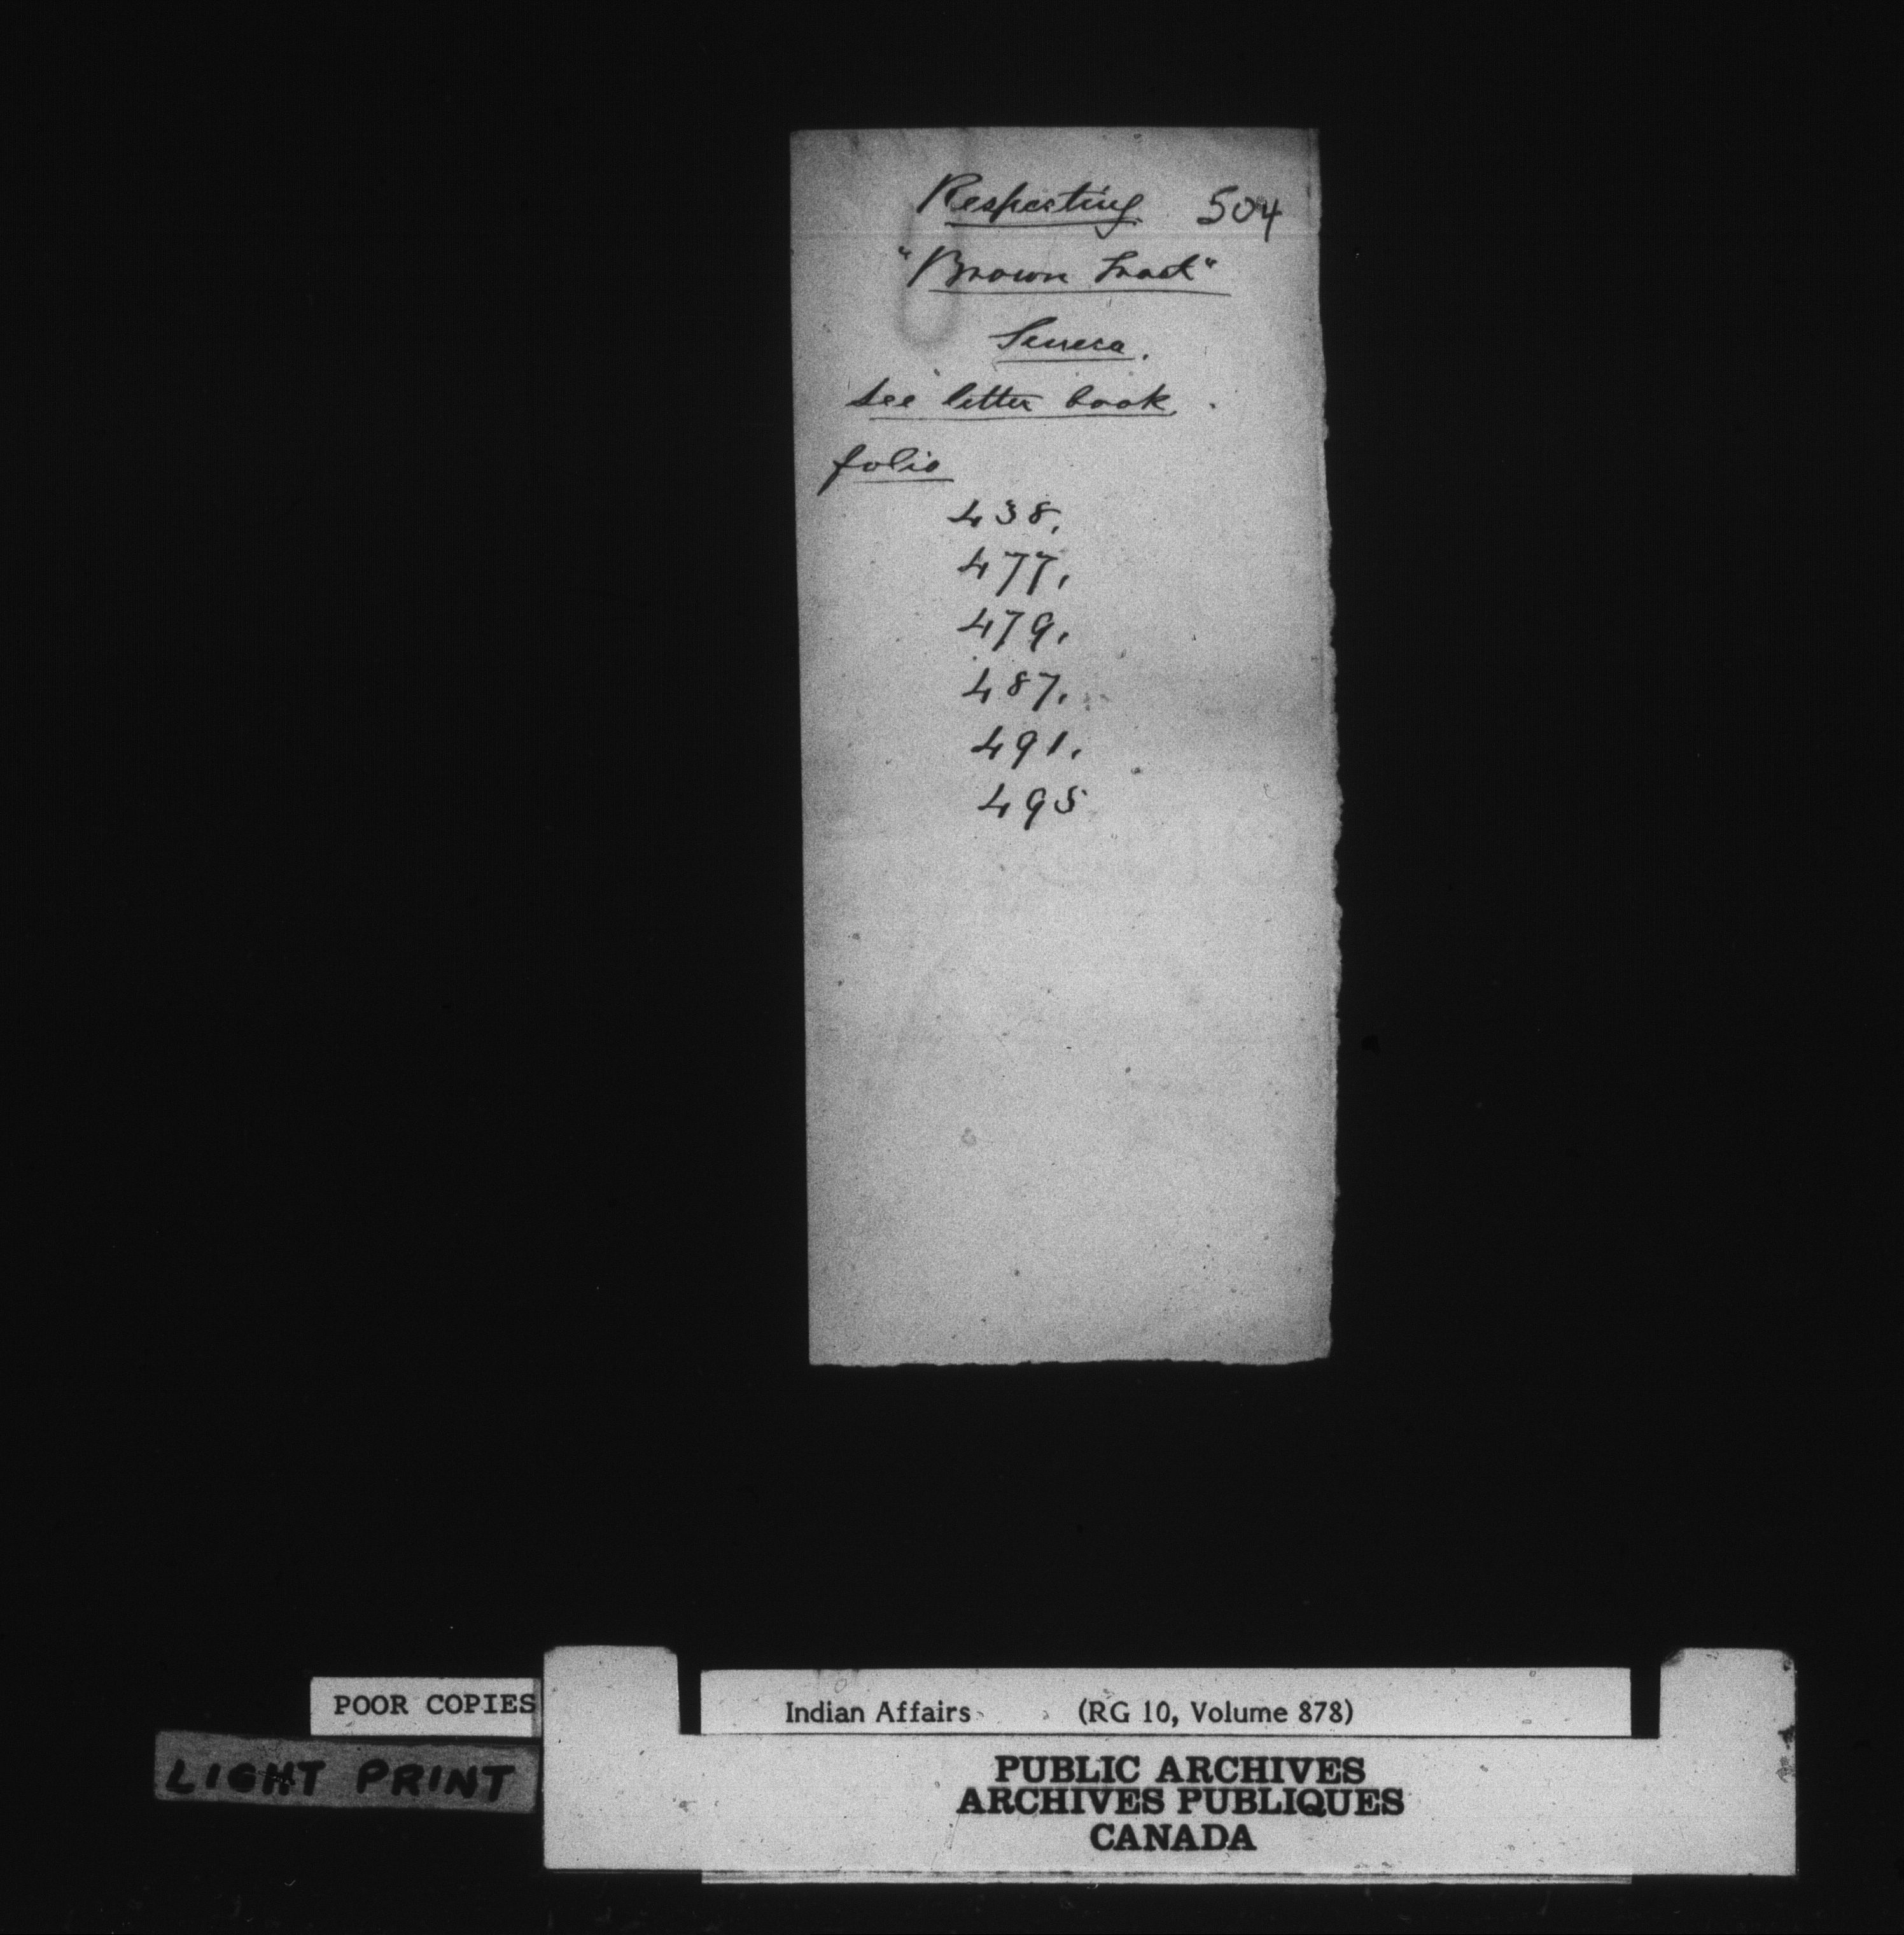 Respecting 504
"Brown Tract"
Seneca.
See letter book.
folio
438.
477.
479.
487.
491.
495
POOR COPIES
LIGHT PRINT
Indian Affairs (RG 10, Volume 878)
PUBLIC ARCHIVES
ARCHIVES PUBLIQUES
CANADA